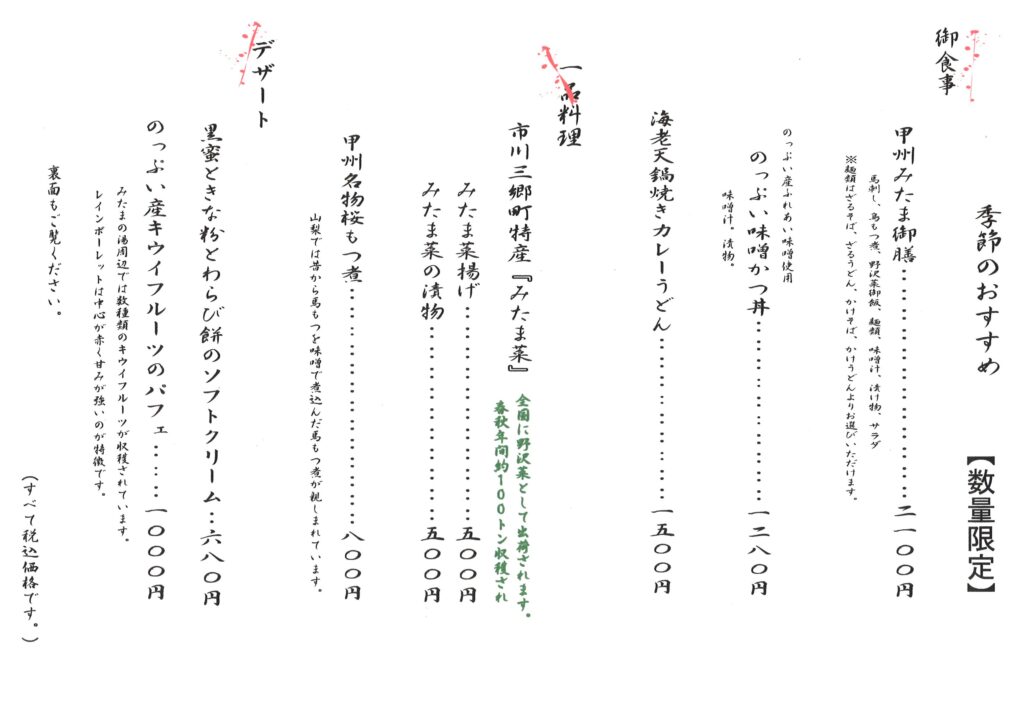 季節のおすすめ【数量限定】
御食事
甲州みたま御膳‥‥‥‥‥‥‥‥‥‥‥二一〇〇円
馬刺し、鳥もつ煮、野沢菜御飯、麺類、味噌汁、漬け物、サラダ
※麺類はざるそば、ざるうどん、かけそば、かけうどんよりお選びいただけます。
のっぷい産ふれあい味噌使用
のっぷい味噌かつ丼‥‥‥‥‥‥‥‥‥一二八〇円
味噌汁。漬物。
海老天鍋焼きカレーうどん‥‥‥‥‥‥‥‥一五〇〇円
一品料理
市川三郷町特産『みたま菜』
全国に野沢菜として出荷されます。
春秋年間約100トン収穫され
みたま菜揚げ‥‥‥‥‥‥‥‥‥‥五〇〇円
みたま菜の漬物‥‥‥‥‥‥‥‥‥五〇〇円
甲州名物桜もつ煮‥‥‥‥‥‥‥‥‥‥‥八〇〇円
山梨では昔から馬もつを味噌で煮込んだ馬もつ煮が親しまれています。
デザート
黒蜜ときな粉とわらび餅のソフトクリーム‥六八〇円
のっぷい産キウイフルーツのパフェ‥‥‥一〇〇〇円
みたまの湯周辺では数種類のキウイフルーツが収穫されています。
レインボーレットは中心が赤く甘みが強いのが特徴です。
裏面もご覧ください。
（すべて税込価格です。）